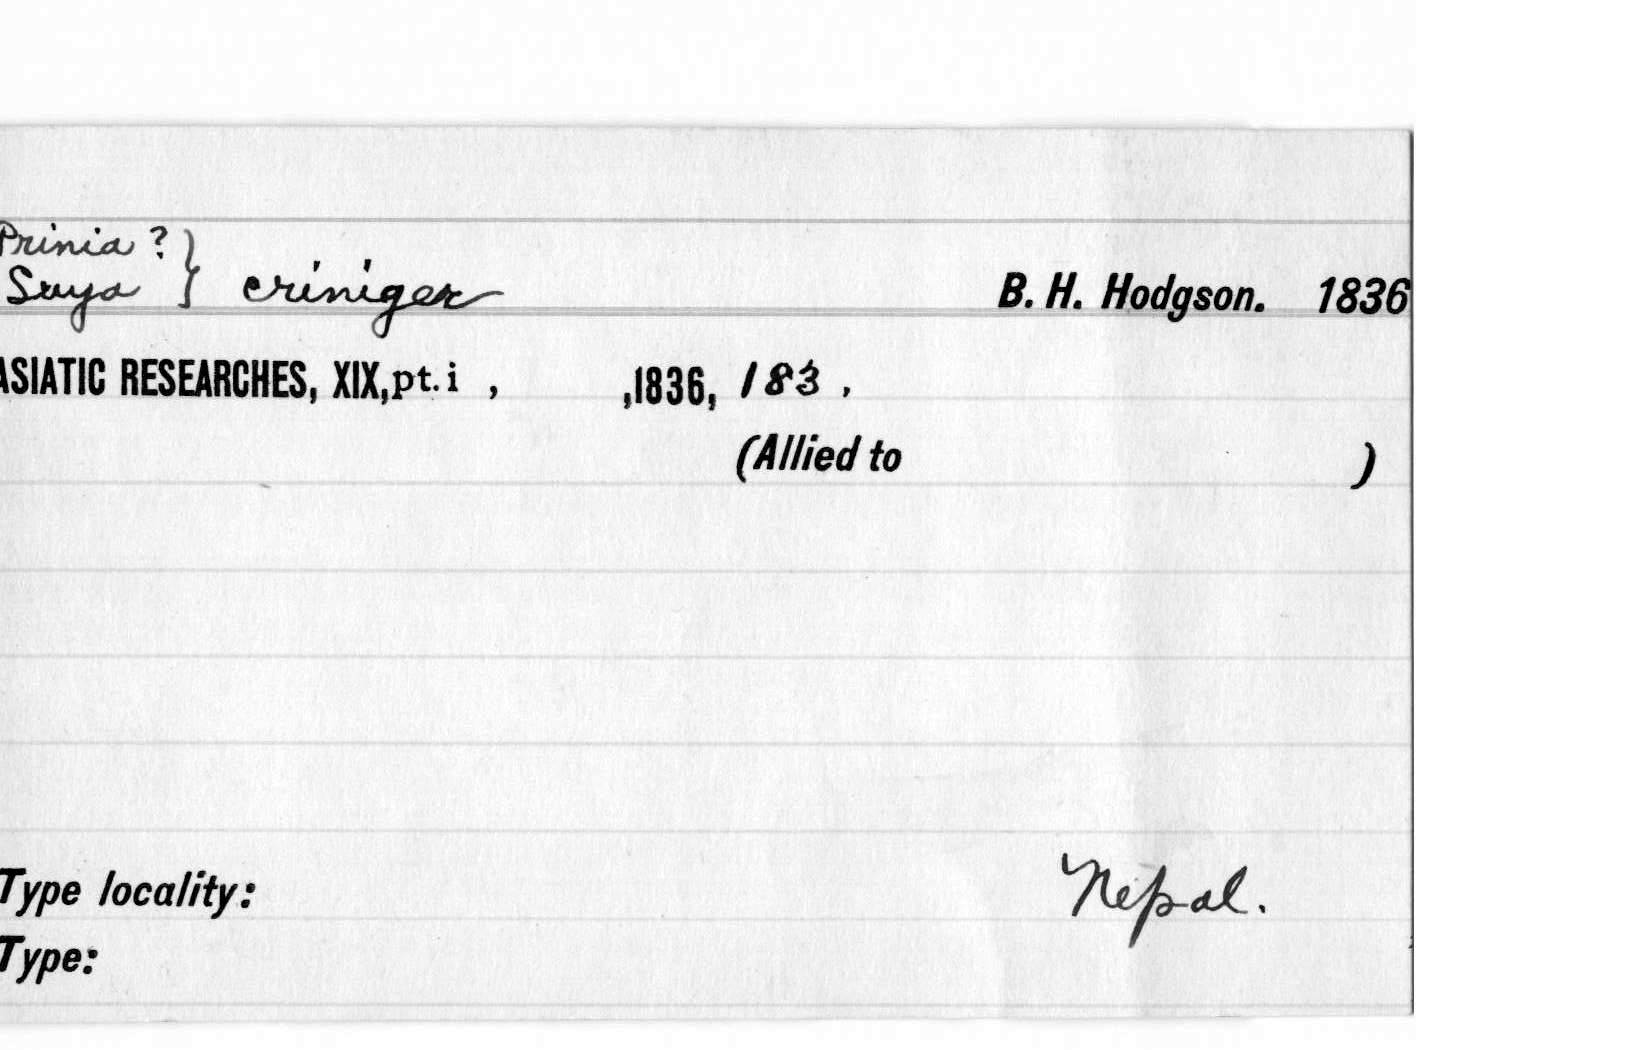 Prinia ?
Suya } criniger B. H. Hodgson. 1836
ASIATIC RESEARCHES, XIX, pt. i , ,1836, 183 ,
(Allied to )
Type locality: Nepal.
Type: